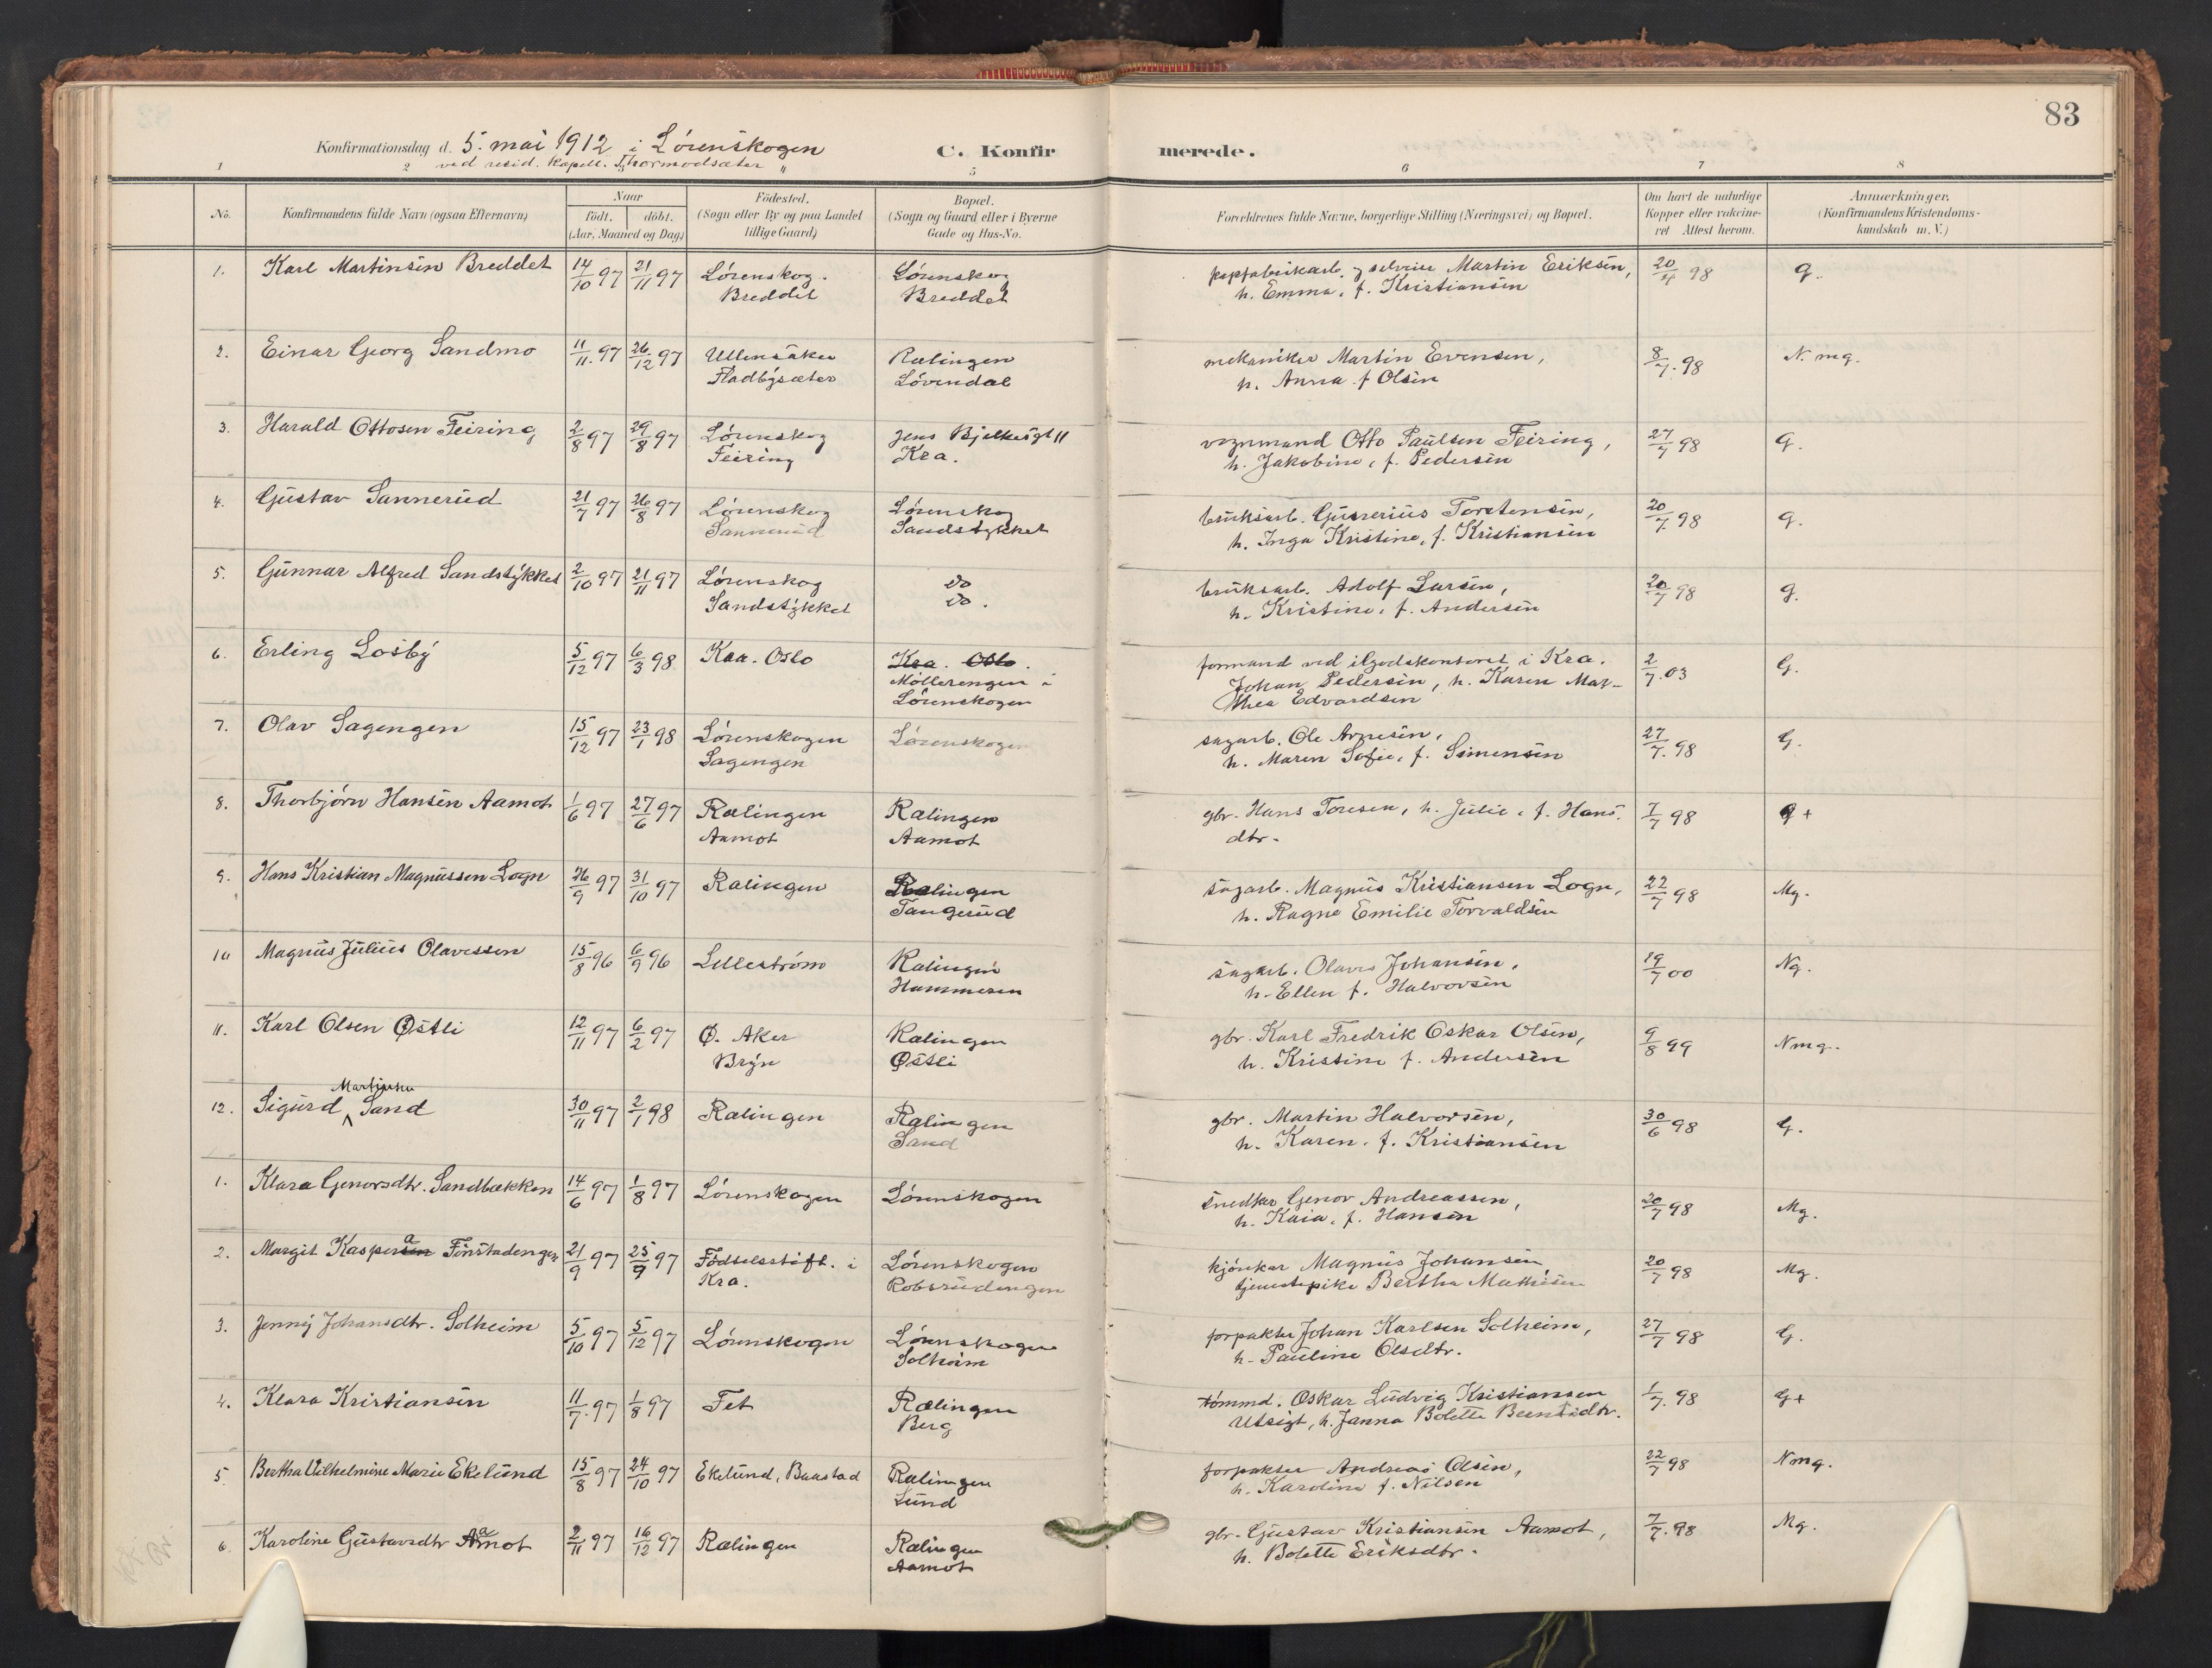 83
Konfirmationsdag d. 5. mai 1912 i Lörenskogen
ved resid. kapell. Thormodsæter
C. Konfirmerede.
1 2 3 4 5 6 7 8
No. Konfirmandens fulde Navn (ogsaa Efternavn)
Naar
födt. döbt.
(Aar, Maaned og Dag)
Födested.
(Sogn eller By og paa Landet
tillige Gaard)
Bopæl.
(Sogn og Gaard eller i Byerne
Gade og Hus-No.
Forældrenes fulde Navne, borgerlige Stilling (Næringsvei) og Bopæl.
Om havt de naturlige
Kopper eller vakcine-
ret Attest herom.
Anmærkninger.
(Konfirmandens Kristendoms-
kundskab m. V.)
1. Karl Martinsen Breddet 14/10 97 21/11 97 Lörenskog. Lörenskog Martin Eriksen, 20/4 98 G.
Breddet Breddet h. Emma, f. Kristiansen
2. Einar Georg Sandmo 11/11. 97 26/12 97 Ullensaker Rælingen mekaniker Martin Evensen, 8/7. 98 N. mg.
Fladbysæter Lövendal h. Anna f Olsen
3. Harald Ottosen Feiring 2/8 97 29/8 97 Lörenskog Jens Bjelkesgt 11 vognmand Otto Paulsen Feiring, 27/7 98 G.
Feiring Kra. h. Jakobine, f. Pedersen
4. Gustav Sannerud 21/7 97 26/8 97 Lörenskog Lörenskog bruksarb. Torstensen, 20/7 98 G.
Sannerud Sandstykket h. Inga Kristine, f. Kristiansen
5. Gunnar Alfred Sandstykket 2/10 97 21/11 97 Lörenskog do bruksarb. Adolf Larsen, 20/7 98 G.
Sandstykket do. h. Kristine, f. Andersen
6. Erling Losby 5/12 97 6/3 98 Kra. Oslo Kra. Oslo. formand ved ilgodskontoret i Kra. 2/7. 03 G.
Möllerengen i Johan Pedersen, h. Karen Mar-
Lörenskogen thea Edvardsen
7. Olav Sagengen 15/12 97 23/1 98 Lörenskogen Lörenskogen sagarb. Ole Arnesen, 27/7. 98 G.
Sagengen h. Maren Sofie, f. Simensen
8. Thorbjörn Hansen Aamot 1/6 97 27/6 97 Rælingen Rælingen gbr. Hans Toresen, h. Julie, f. Hans. 7/7 98 G +
Aamot Aamot dtr.
9. Hans Kristian Magnussen Logn 26/9 97 31/10 97 Rælingen Rælingen sagarb. Magnus Kristiansen Logn, 22/7 98 Mg.
Tangerud h. Ragna Emilie Torvaldsen
10 Magnus Julius Olavessen 15/8 96 6/9 96 Lilleström Rælingen sagarb. Olaves Johansen, 19/7 00 Ng.
Hammeren h. Ellen f. Halvorsen
11. Karl Olsen Østli 12/11 97 6/2 97 Ø. Aker Rælingen gbr. Karl Fredrik Oskar Olsen, 9/8 99 Nmg.
Bryn Østli h. Kristine f. Andersen
12. Sigurd Martinsen Sand 30/11 97 2/1 98 Rælingen Rælingen gbr. Martin Halvorsen, 30/6 98 G.
Sand h. Karen, f. Kristiansen
1. Klara Genorsdtr. Sandbækken 14/6 97 1/8 97 Lörenskogen Lörenskogen snedker Genor Andreassen, 20/7 98 Mg.
h. Kaia, f. Hansen
2. Margit Kaspersen Finstadengen 21/9 97 25/9 97 Födselsstift. i Lörenskogen Magnus Johansen 20/7 98 Mg.
Kra. Robsrudengen tjenestepike Bertha Mathisen
3. Jenny Johansdtr. Solheim 5/10 97 5/12 97 Lörenskogen Lörenskogen forpakter Johan Karlsen Solheim, 27/7 98 G.
Solheim h. Pauline Olsdtr.
4. Klara Kristiansen 11/7. 97 1/8 97 Fet Rælingen tömmd. Oskar Ludvig Kristiansen 1/7. 98 G+
Berg Utsigt, h. Janna Bolette Berntsdtr.
5 Bertha Vilhelmine Marie Ekelund 15/8 97 24/10 97 Ekelund, Baastad Rælingen forpakter Andreas Olsen, 22/7 98 Nmg.
Lund h. Karoline f. Nilsen
6. Karoline Gustavsdtr Aamot 2/11 97 16/12 97 Rælingen Rælingen gbr. Gustav Kristiansen Aamot, 7/7. 98 Mg.
Aamot h. Bolette Eriksdtr.